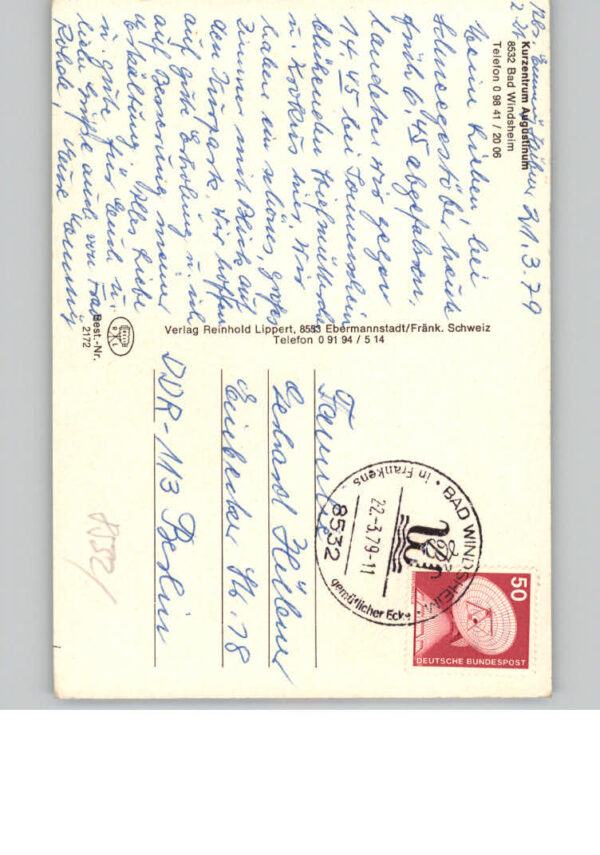 Abs. Emmi Stüber 21.3.79
Z. Zt.
Kurzentrum Augustinum
8532 Bad Windsheim
Telefon 0 98 41 / 20 06
Meine Lieben, bei
Schneegestöber heute
früh 6.45 abgefahren,
landeten wir gegen
14.45 bei Sonnenschein
blühenden
u. Krokus hier. Wir
haben ein schönes, großes
Zimmer mit Blick auf
den Kurpark. Wir hoffen
auf gute Erholung u. ich
auf Besserung meiner
Erkältung. Alles Liebe
u. Gute für Euch u.
liebe Grüße auch von
Eure
Best.-Nr.
2172
Verlag Reinhold Lippert, 8553 Ebermannstadt/Fränk. Schweiz
Telefon 0 91 94 / 5 14
Familie
Gerhard
Einbecker Str. 78
DDR-113 Berlin
8532
BAD WINDSHEIM
in Frankens
gemütlicher Ecke
22.-3.79-11
8532
50
DEUTSCHE BUNDESPOST